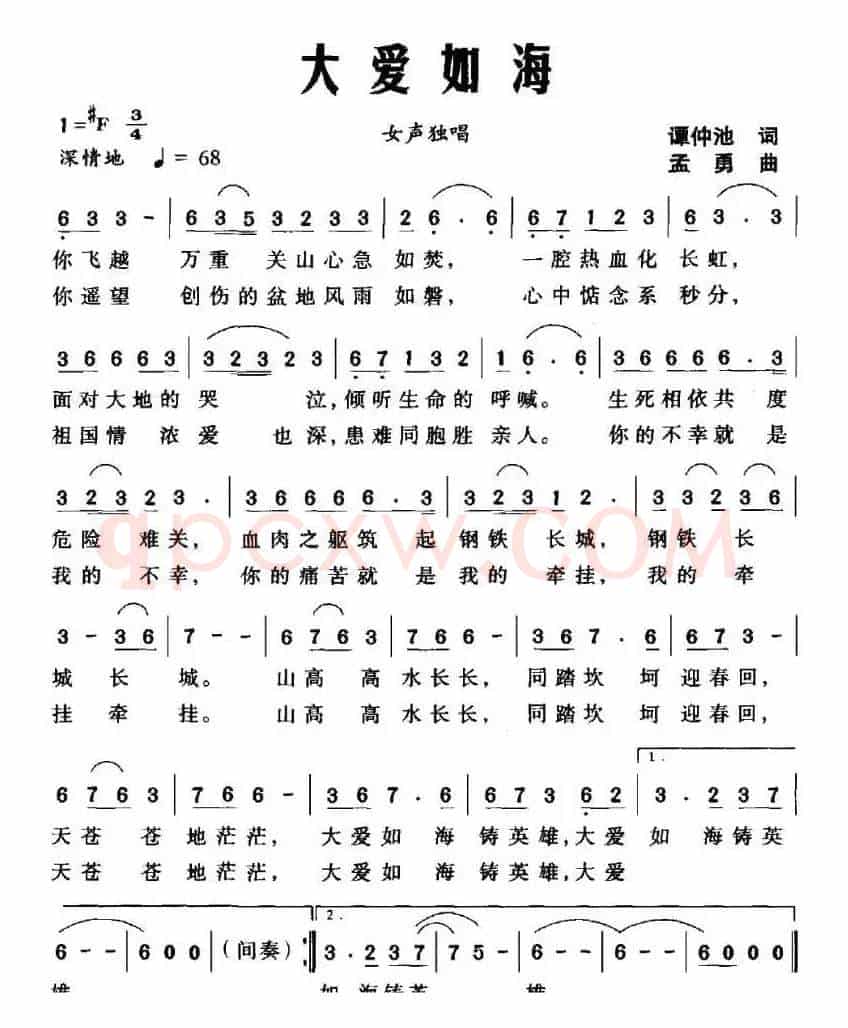 大爱如海
1=♯F 3/4
女声独唱
谭仲池 词
深情地 ♩=68
孟 勇 曲
6 3 3 - | 6 3 5 3 2 3 3 | 2 6 . 6 | 6 7 1 2 3 | 6 3 . 3 |
你飞越 万重 关山心急 如焚, 一腔热血化 长虹,
你遥望 创伤的盆地风雨 如磐, 心中惦念系 秒分,
3 6 6 6 3 | 3 2 3 2 3 | 6 7 1 3 2 | 1 6 . 6 | 3 6 6 6 6 . 3 |
面对大地的 哭 泣,倾听生命的 呼喊。 生死相依共 度
祖国情 浓爱 也深,患难同胞胜 亲人。 你的不幸就 是
3 2 3 2 3 . | 3 6 6 6 6 . 3 | 3 2 3 1 2 . | 3 3 2 3 6 |
危险 难关, 血肉之躯筑 起 钢铁 长城, 钢铁 长
我的 不幸, 你的痛苦就 是 我的 牵挂, 我的 牵
qpcxw.COM
3 - 3 6 | 7 - - | 6 7 6 3 | 7 6 6 - | 3 6 7 . 6 | 6 7 3 - |
城 长 城。 山高 高 水长长, 同踏坎 坷 迎春回,
挂 牵 挂。 山高 高 水长长, 同踏坎 坷 迎春回,
1.
6 7 6 3 | 7 6 6 - | 3 6 7 . 6 | 6 7 3 6 2 | 3 . 2 3 7 |
天苍 苍 地茫茫, 大爱如 海 铸英雄,大爱 如 海铸英
天苍 苍 地茫茫, 大爱如 海 铸英雄,大爱
2.
6 - - | 6 0 0 0 | (间奏) :‖ 3 . 2 3 7 | 7 5 - | 6 - - | 6 0 0 0 ‖
雄 如 海铸英 雄